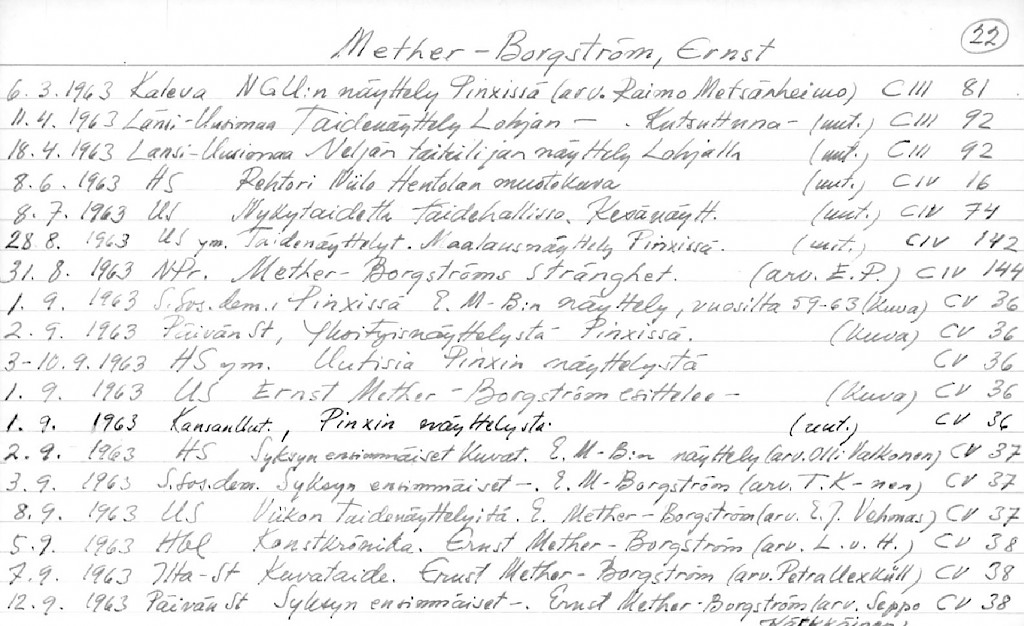 22
Mether-Borgström, Ernst
6.3.1963 Kaleva NGU:n näyttely Pinxissä (arv. Raimo Metsänheimo) C III 81
11.4.1963 Länsi-Uusimaa Taidenäyttely Lohjan - . Kutsuttuna- (uut.) C III 92
18.4.1963 Länsi-Uusimaa Neljän taiteilijan näyttely Lohjalla (uut.) C III 92
8.6.1963 HS Rehtori Niilo Hentolan muotokuva (uut.) C IV 16
8.7.1963 US Nykytaidetta Taidehallissa. Kesänäytt. (uut.) C IV 74
28.8. 1963 US ym. Taidenäyttelyt. Maalausnäyttely Pinxissä. (uut.) C IV 142
31.8. 1963 N Pr. Mether-Borgströms stränghet. (arv. E.P.) C IV 144
1.9. 1963 S.Sos.dem., Pinxissä E. M-B:n näyttely, vuosilta 59-63 (Kuva) CV 36
2.9. 1963 Päivän St, Yksityisnäyttelystä Pinxissä. (Kuva) CV 36
3-10.9.1963 HS ym. Uutisia Pinxin näyttelystä CV 36
1.9. 1963 US Ernst Mether-Borgström esittelee - (Kuva) CV 36
1.9. 1963 KansanUut., Pinxin näyttelystä. (uut.) CV 36
2.9. 1963 HS Syksyn ensimmäiset kuvat. E. M-B:n näyttely (arv. Olli Valkonen) CV 37
3.9. 1963 S.Sos.dem. Syksyn ensimmäiset -. E. M-Borgström (arv. T.K-nen) CV 37
8.9. 1963 US Viikon taidenäyttelyitä. E. Mether-Borgström (arv. E.J. Vehmas) CV 37
5.9. 1963 Hbl Konstkrönika. Ernst Mether-Borgström (arv. L.v.H.) CV 38
7.9. 1963 Ilta-St Kuvataide. Ernst Mether-Borgström (arv. Petra Uexküll) CV 38
12.9. 1963 Päivän St Syksyn ensimmäiset -. Ernst Mether-Borgström (arv. Seppo CV 38